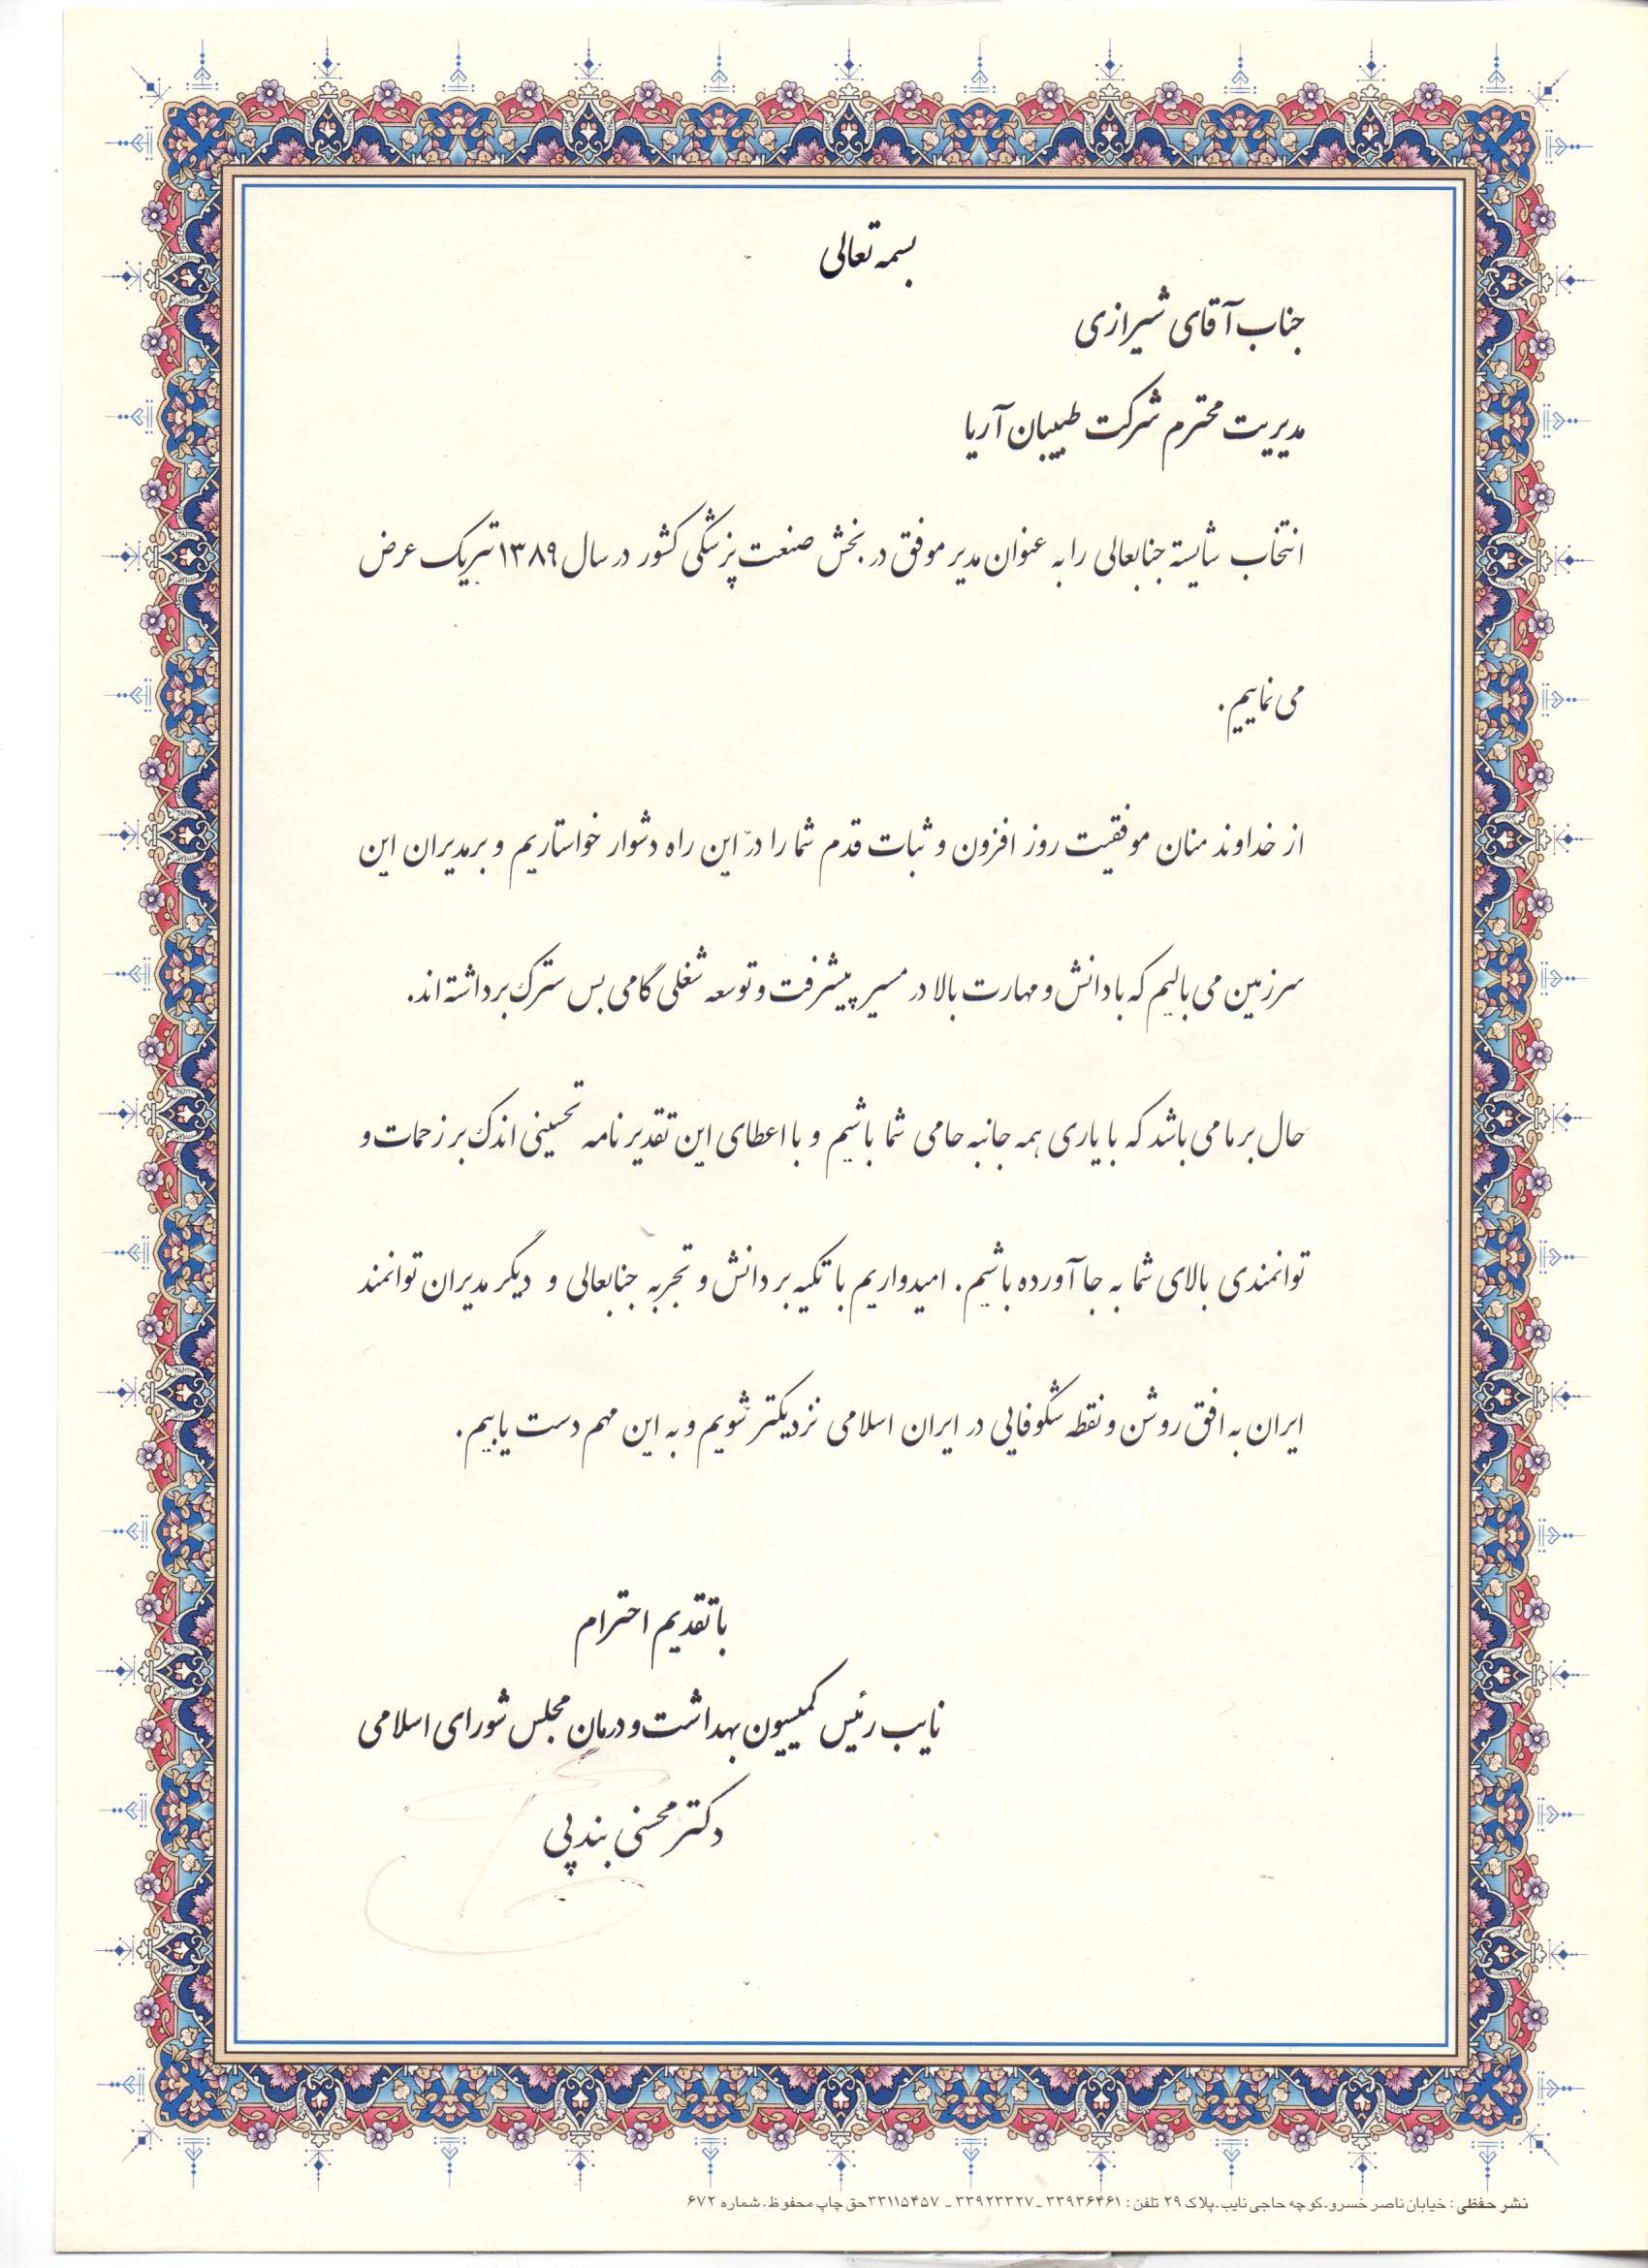 بسمه تعالی
جناب آقای شیرازی
مدیریت محترم شرکت طبیبان آریا
انتخاب شایسته جنابعالی را به عنوان مدیر موفق در بخش صنعت پزشکی کشور در سال ۱۳۸۹ تبریک عرض
می نماییم.
از خداوند منان موفقیت روز افزون و ثبات قدم شما را در این راه دشوار خواستاریم و بر مدیران این
سرزمین می بالیم که با دانش و مهارت بالا در مسیر پیشرفت و توسعه شغلی گامی بس سترک برداشته اند.
حال بر ما می باشد که با یاری همه جانبه حامی شما باشیم و با اعطای این تقدیر نامه تحسینی اندک بر زحمات و
توانمندی بالای شما به جا آورده باشیم. امیدواریم با تکیه بر دانش و تجربه جنابعالی و دیگر مدیران توانمند
ایران به افق روشن و نقطه شکوفایی در ایران اسلامی نزدیکتر شویم و به این مهم دست یابیم.
با تقدیم احترام
نایب رئیس کمیسیون بهداشت و درمان مجلس شورای اسلامی
دکتر محسنی بندپی
نشر حفظی : خیابان ناصر خسرو.کوچه حاجی نایب.پلاک ۲۹ تلفن : ۳۳۹۳۶۴۶۱ ـ ۳۳۹۲۳۳۲۷ ـ ۳۳۱۱۵۴۵۷حق چاپ محفوظ. شماره ۶۷۲